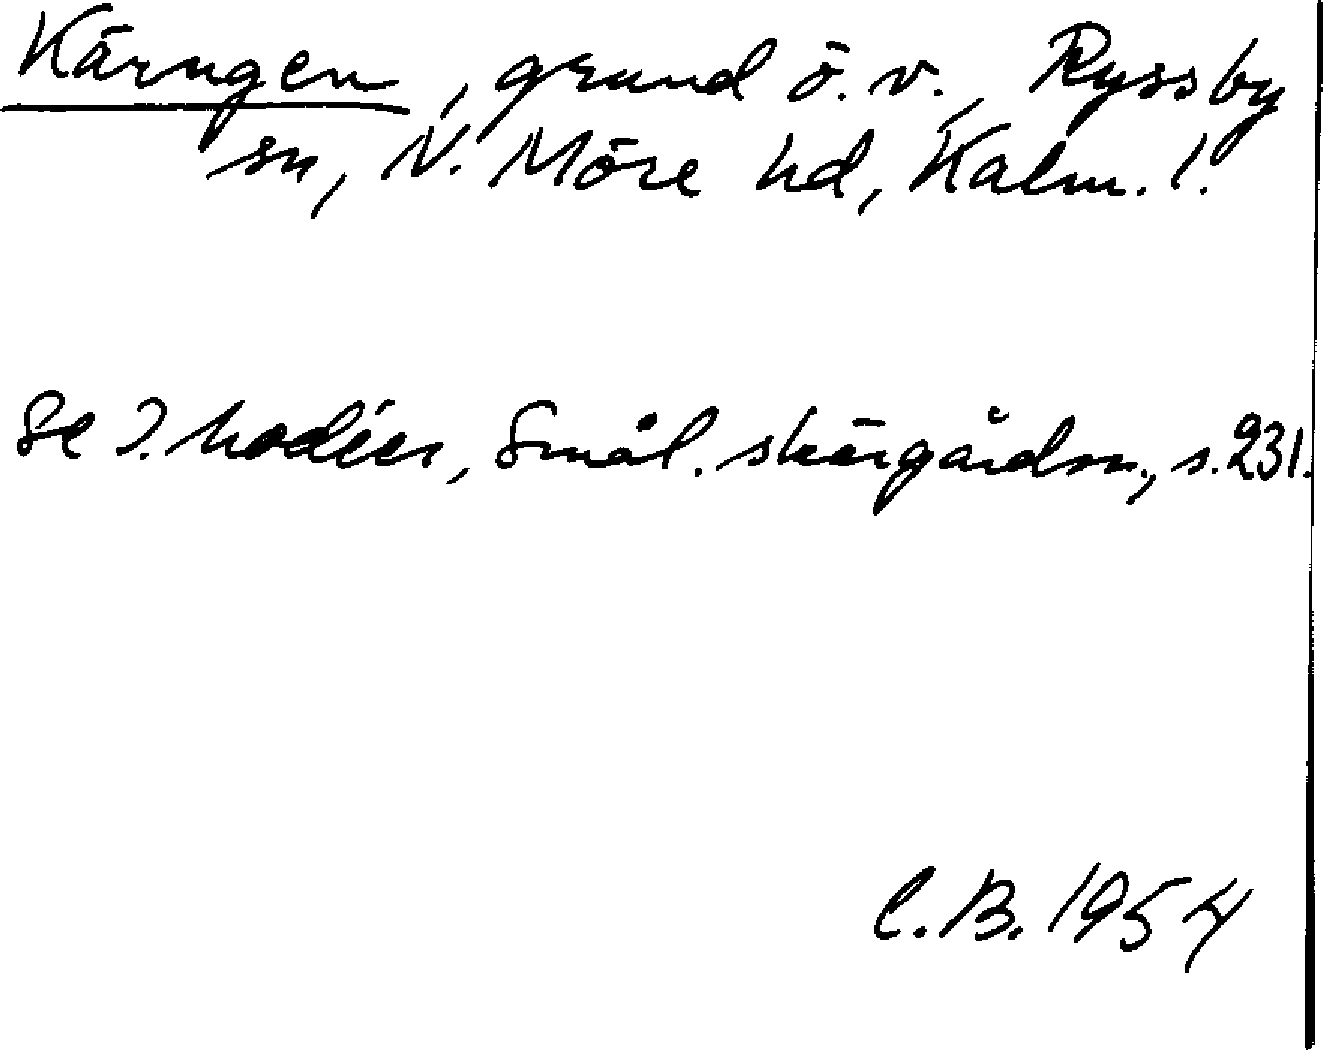 Kärngen, grund ö. v., Ryssby
sn, N. Möre hd, Kalm. l.
Se I. Modéer, Smål. skärgårdsn., s. 231.
C.B. 1954